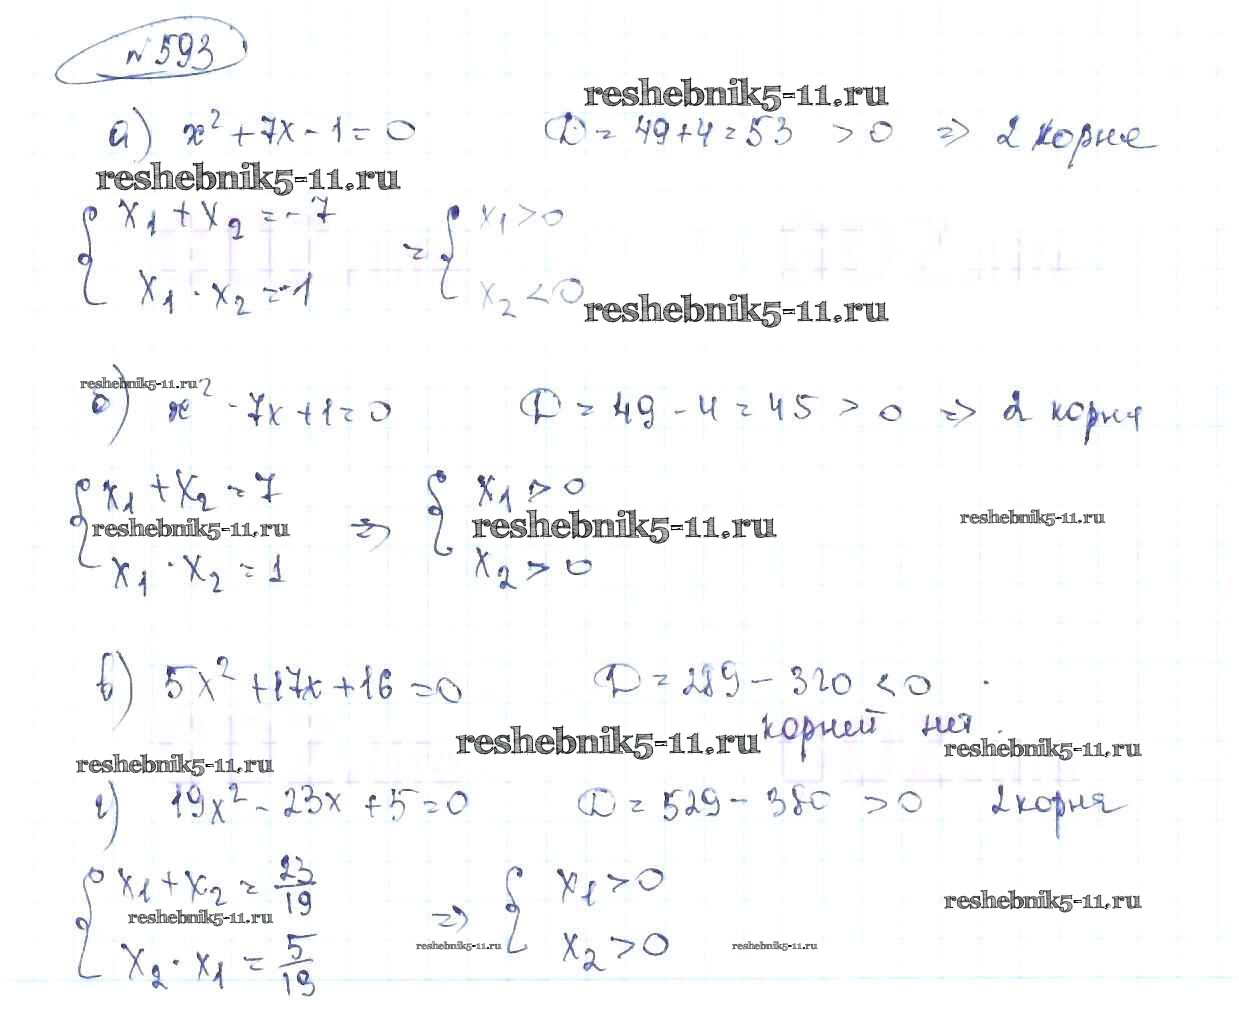 №593
reshebnik5-11.ru
а) x² + 7x - 1 = 0 D = 49 + 4 = 53 > 0 => 2 корня
reshebnik5-11.ru
{ x₁ + x₂ = -7 = { x₁ > 0
x₁ · x₂ = -1 x₂ < 0
reshebnik5-11.ru
reshebnik5-11.ru
б) x² - 7x + 1 = 0 D = 49 - 4 = 45 > 0 => 2 корня
{ x₁ + x₂ = 7 => { x₁ > 0
reshebnik5-11.ru reshebnik5-11.ru reshebnik5-11.ru
x₁ · x₂ = 1 x₂ > 0
в) 5x² + 17x + 16 = 0 D = 289 - 320 < 0 .
корней нет.
reshebnik5-11.ru reshebnik5-11.ru
reshebnik5-11.ru
г) 19x² - 23x + 5 = 0 D = 529 - 380 > 0 2 корня
{ x₁ + x₂ = 23/19 => { x₁ > 0
reshebnik5-11.ru reshebnik5-11.ru
x₂ · x₁ = 5/19 x₂ > 0
reshebnik5-11.ru reshebnik5-11.ru